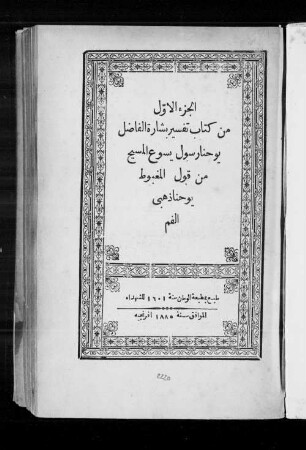 الجزء الاول
من كتاب تفسير بشارة الفاضل
يوحنا رسول يسوع المسيح
من قول المغبوط
يوحنا ذهبي
الفم
طبع بمطبعة الوطن سنة ١٦٠١ للشهداء
الموافق سنة ١٨٨٥ افرنجيه